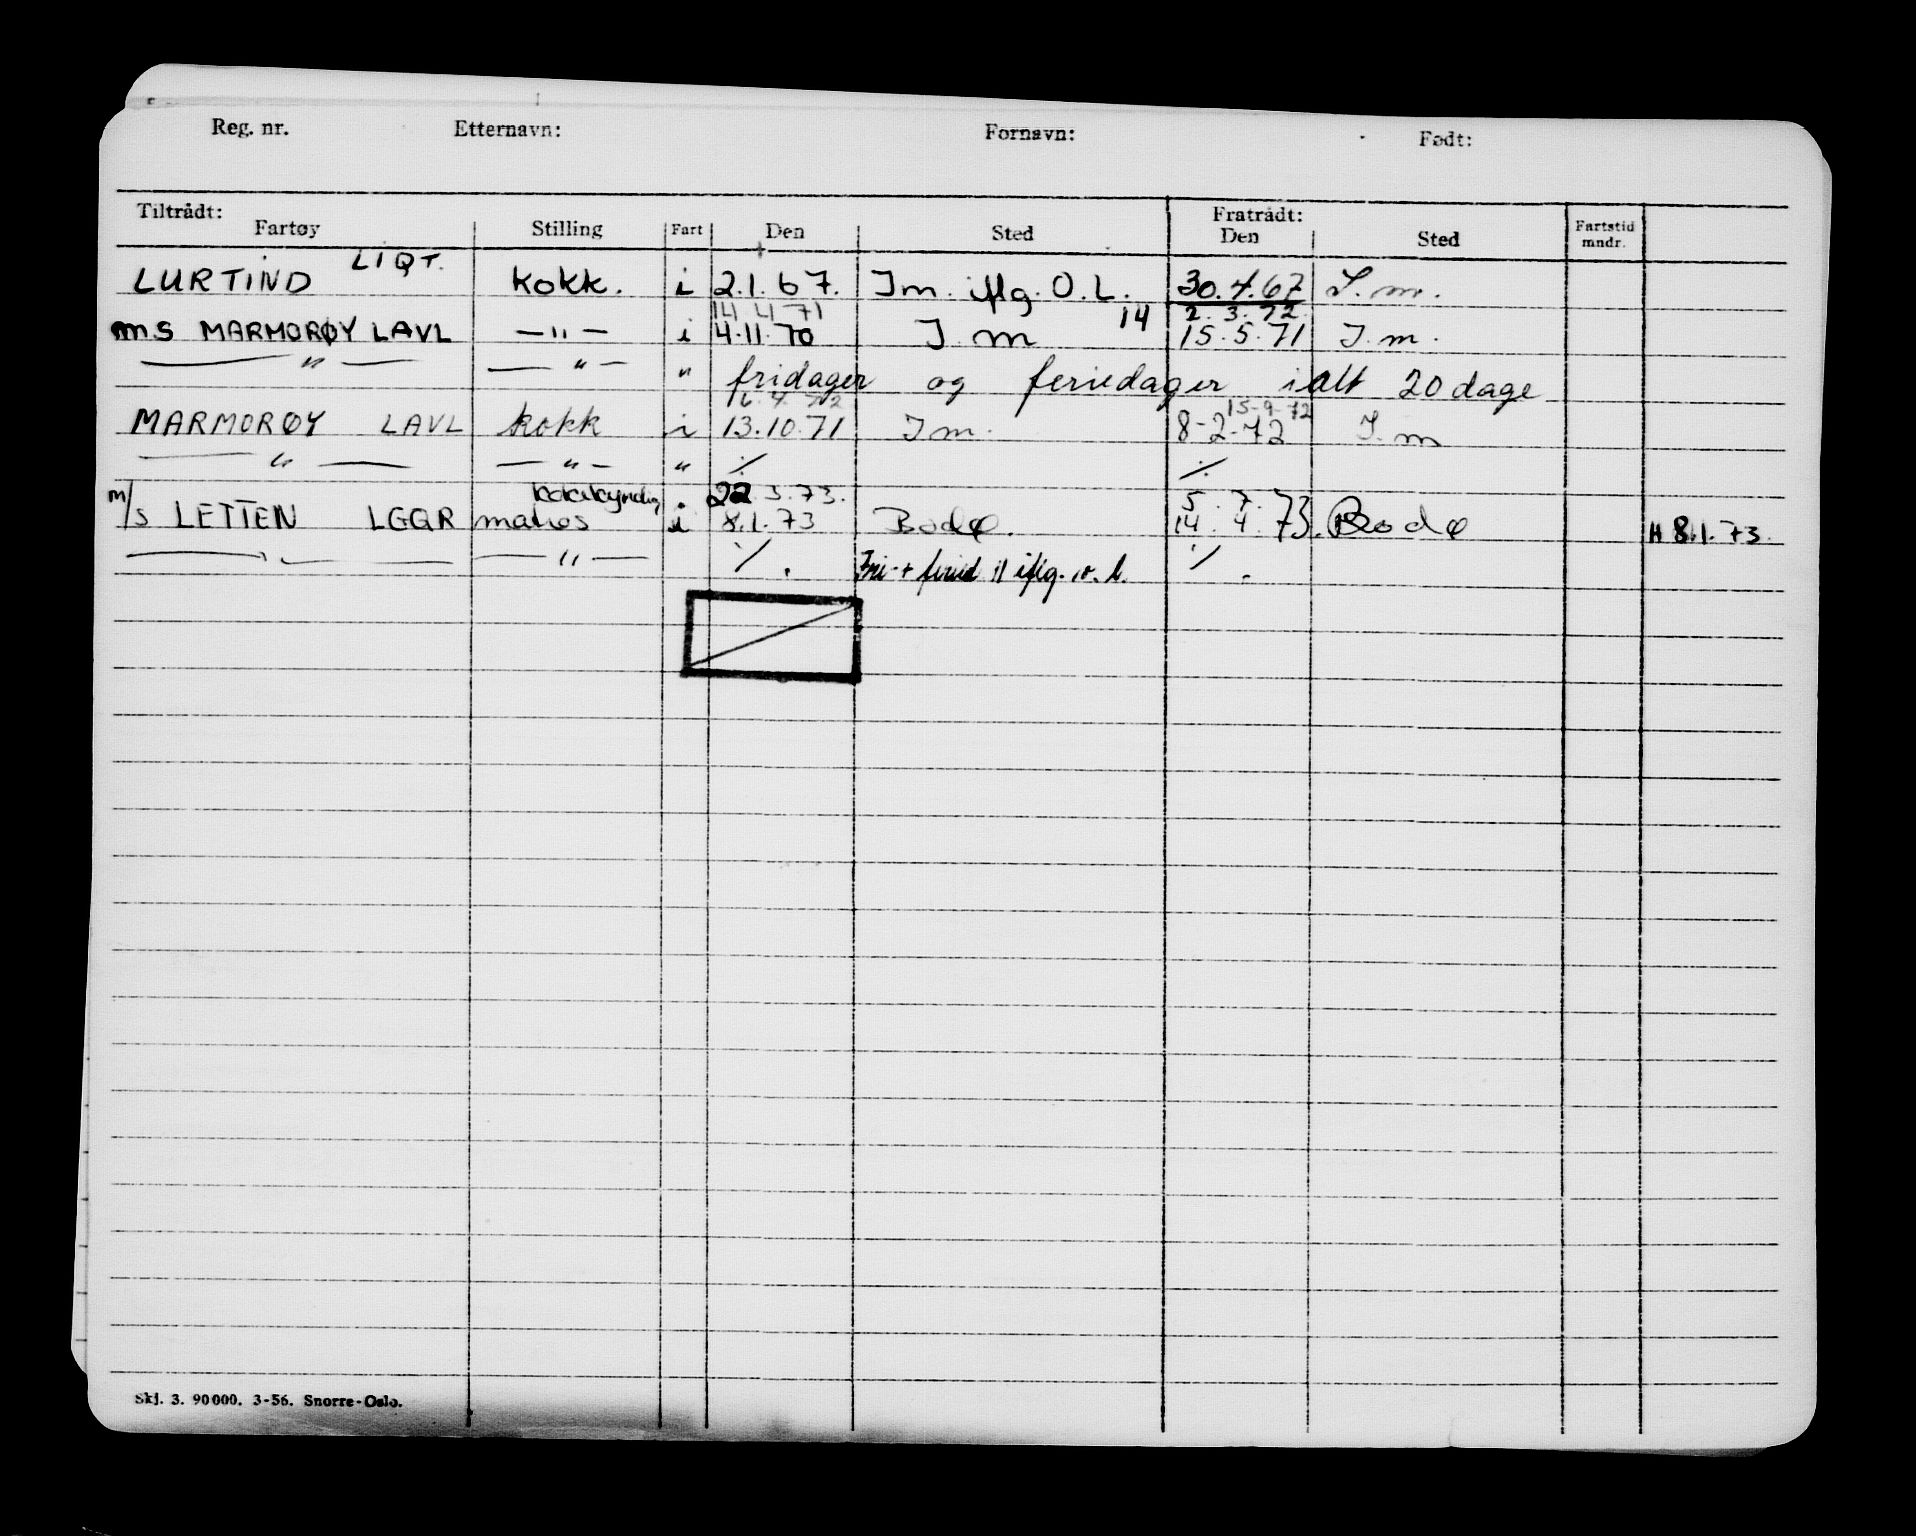 Reg. nr. Etternavn: Fornavn: Født:
Tiltrådt: Fratrådt:
Fartøy Stilling Fart Den Sted Den Sted Fartstid mndr.
LURTIND LIQT. kokk. i 2.1.67. Im. iflg. O.L. 30.4.67 I.m.
14 4 71 14 2.3.72
m s MARMORØY LAVL — " — i 4.11.70 I m 15.5.71 I.m.
— " — — " — " fridager og feriedager ialt 20 dage
6.4.72 15-9-72
MARMORØY LAVL kokk i 13.10.71 I m. 8-2-72 I.m
— " — — " — " ./. ./.
kokkekyndig 22.3.73. 5.7.73
m/s LETTEN LGQR matros i 8.1.73 Bodø. 14.4.73. Bodø H 8.1.73.
— " — — " — ./. Fri + feried iflg. ./.
Skj. 3. 90000. 3-56. Snorre-Oslo.